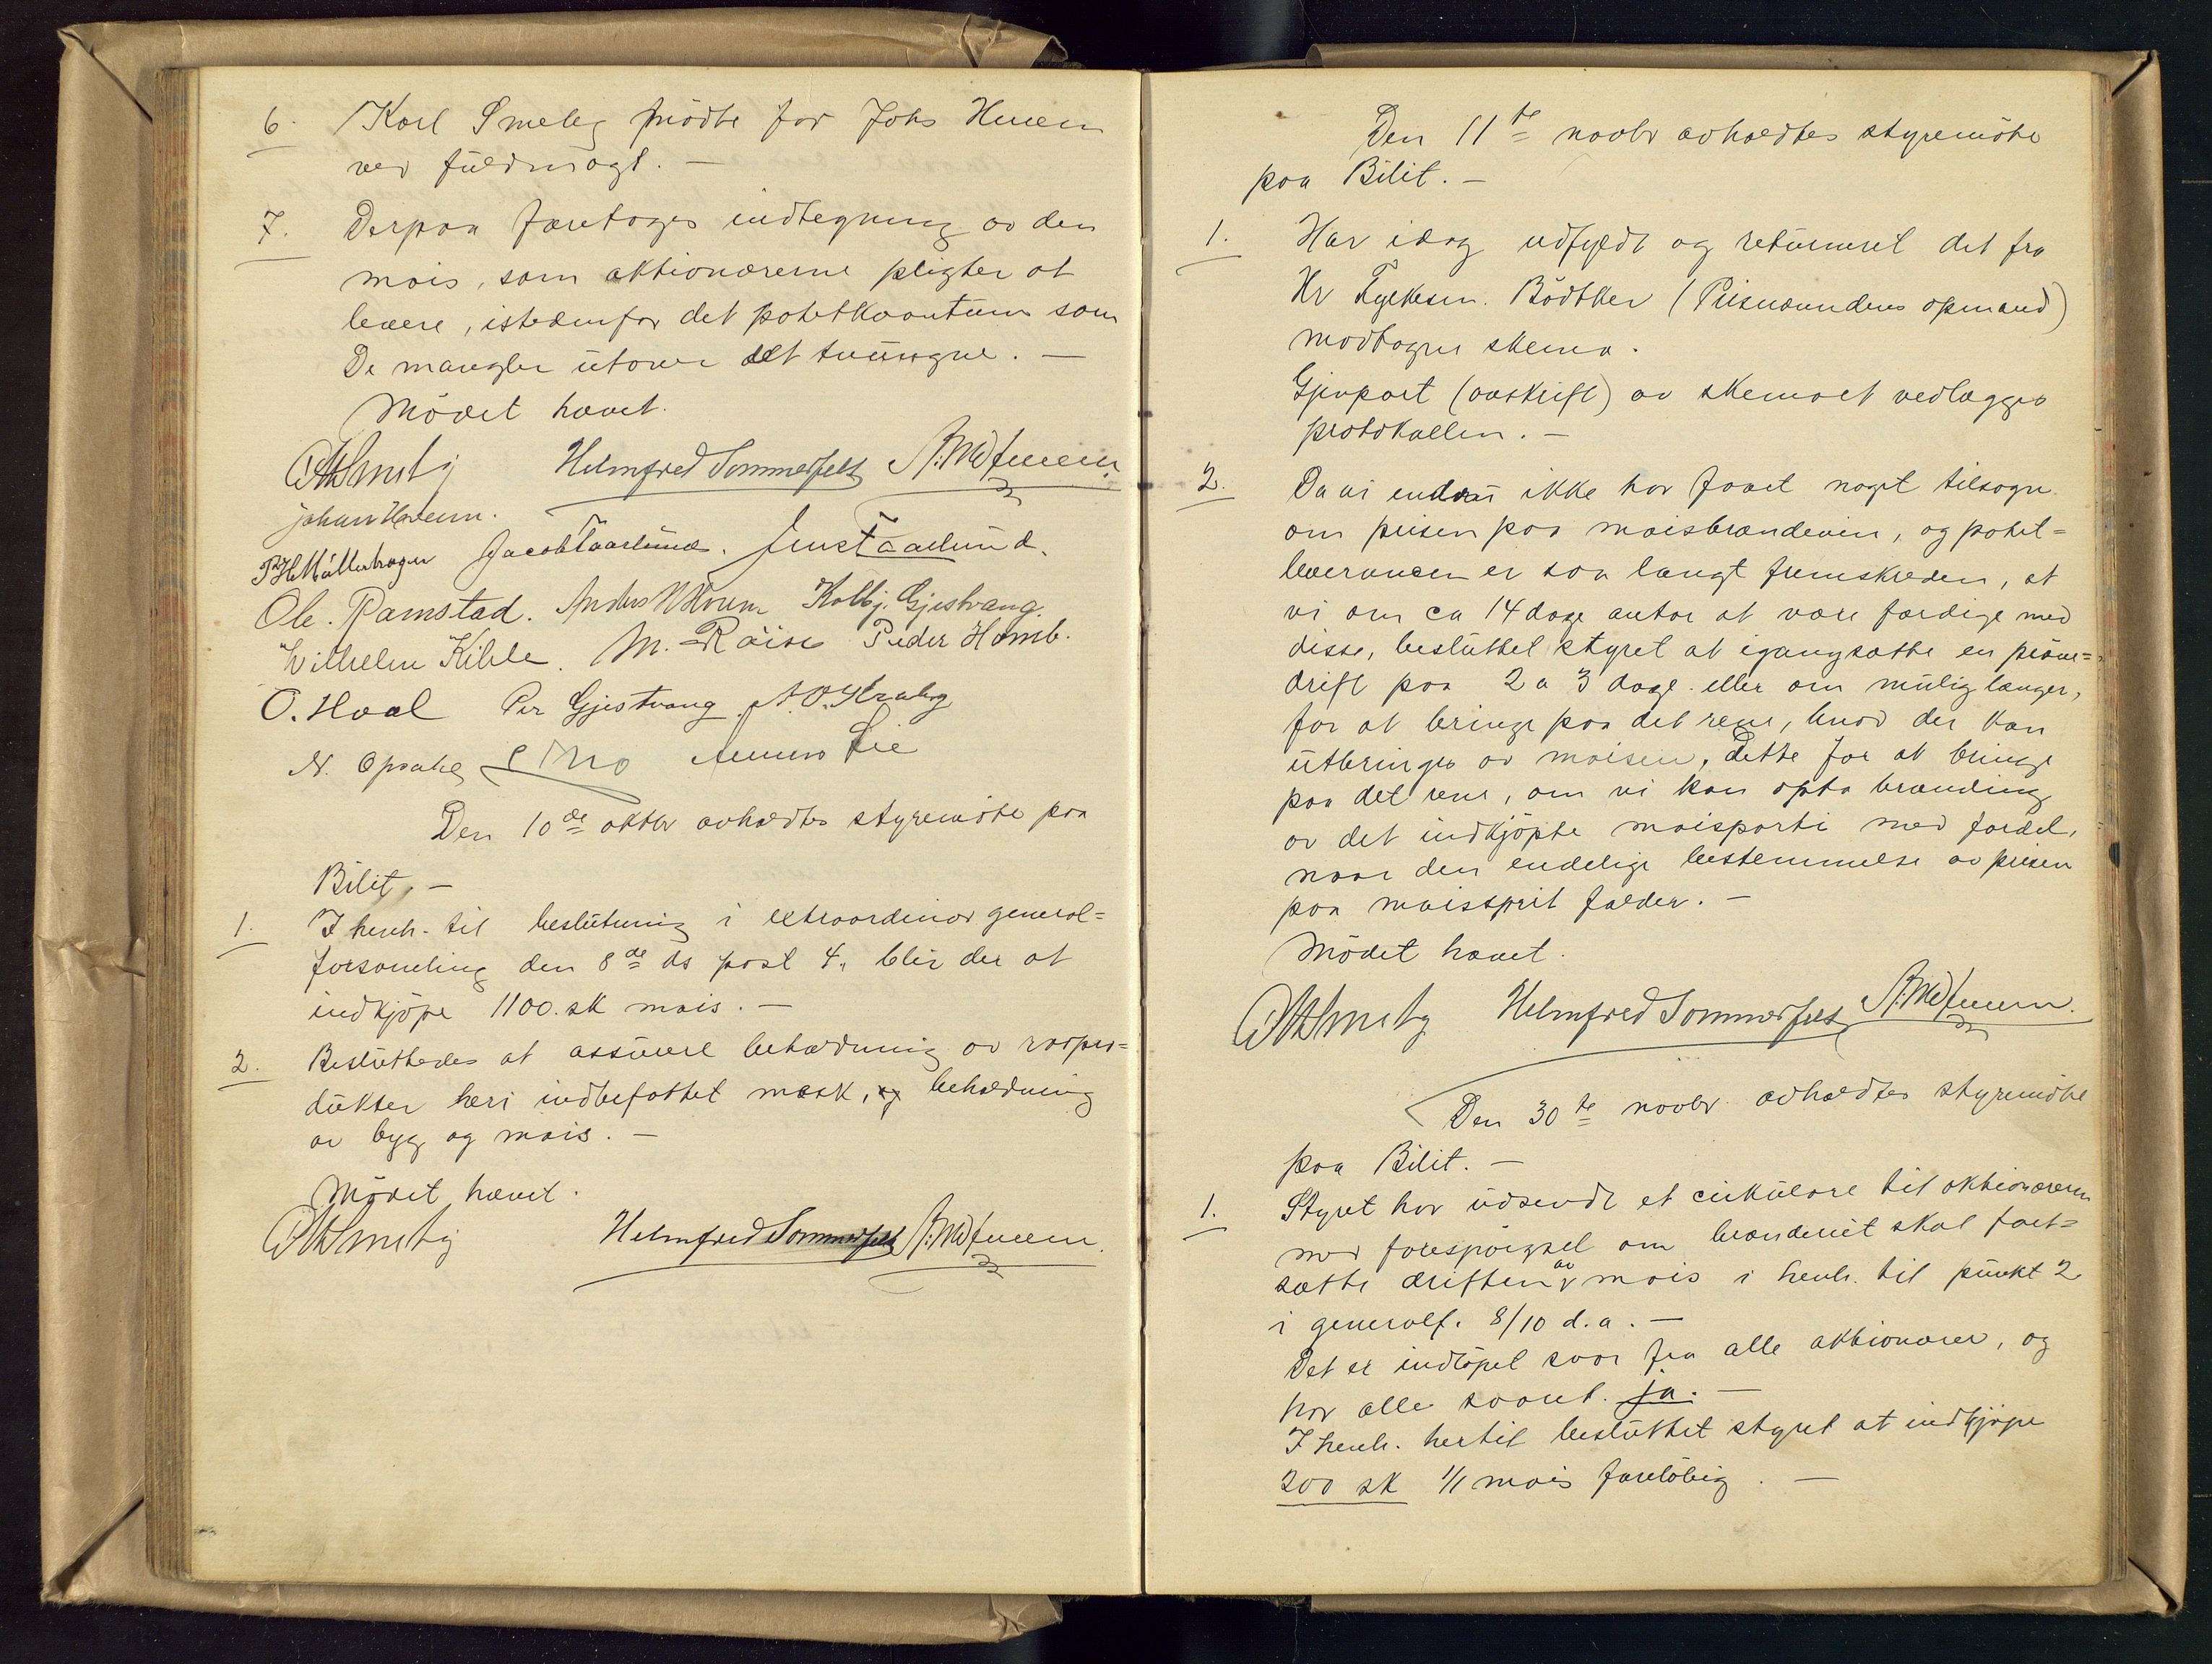 6. Karl Smeby mödte for Johs Hveem
ved fuldmagt. —
7. Derpaa foretoges indtegning av den
mais, som aktionærerne pligter at
levere, istedenfor det potetkvantum som
De mangler utover det tvungne. —
Mödet hævet.
Helmfred Sommerfelt
Johan Hveem.
Jacob Taarlund. Jens Taarlund.
Ole Ramstad. Kolbj. Gjestvang.
Wilhelm Kihle. M. Röise Peder Homb.
O. Hoal Per Gjestvang
N. Opsahl Lie
Den 10de oktbr avholdtes styremöte paa
Bilit. —
1. I henh. til beslutning i extraordinær general=
forsamling den 8de ds post 4, blir der at
indkjöpe 1100 sk mais. —
2. Besluttedes at assurere beholdning av raapro=
dukter heri indbefattet mask, og beholdning
av byg og mais. —
Mödet hævet.
Helmfred Sommerfelt
Den 11te novbr avholdtes styremöte
paa Bilit. —
1. Har idag udfyldt og returneret det fra
Hr Fylkesm. Bödtker (Prisnævndens opmand)
modtagne skema.
Gjenpart (avskrift) av skemaet vedlægges
protokollen. —
2. Da vi endnu ikke har faaet noget tilsagn
om prisen paa maisbrændevin, og potet=
leverancen er saa langt fremskreden, at
vi om ca 14 dage antar at være færdige med
disse, besluttet styret at igangsætte en pröve=
drift paa 2 a 3 dage eller om mulig længer,
for at bringe paa det rene, hvad der kan
utbringes av maisen, dette for at bringe
paa det rene, om vi kan opta brænding
av det indkjöpte maisparti med fordel,
naar den endelige bestemmelse av prisen
paa maissprit falder. —
Mödet hævet.
Helmfred Sommerfelt
Den 30te novbr avholdtes styremöte
paa Bilit. —
1. Styret har udsendt et cirkulære til aktionærerne
med forespörgsel om brænderiet skal fort=
sætte driften av mais i henh. til punkt 2
i generalf. 8/10 d.a. —
Det er indlöpet svar fra alle aktionærer, og
har alle svaret ja. —
I henh. hertil besluttet styret at indkjöpe
200 sk 1/1 mais forelöbig. —